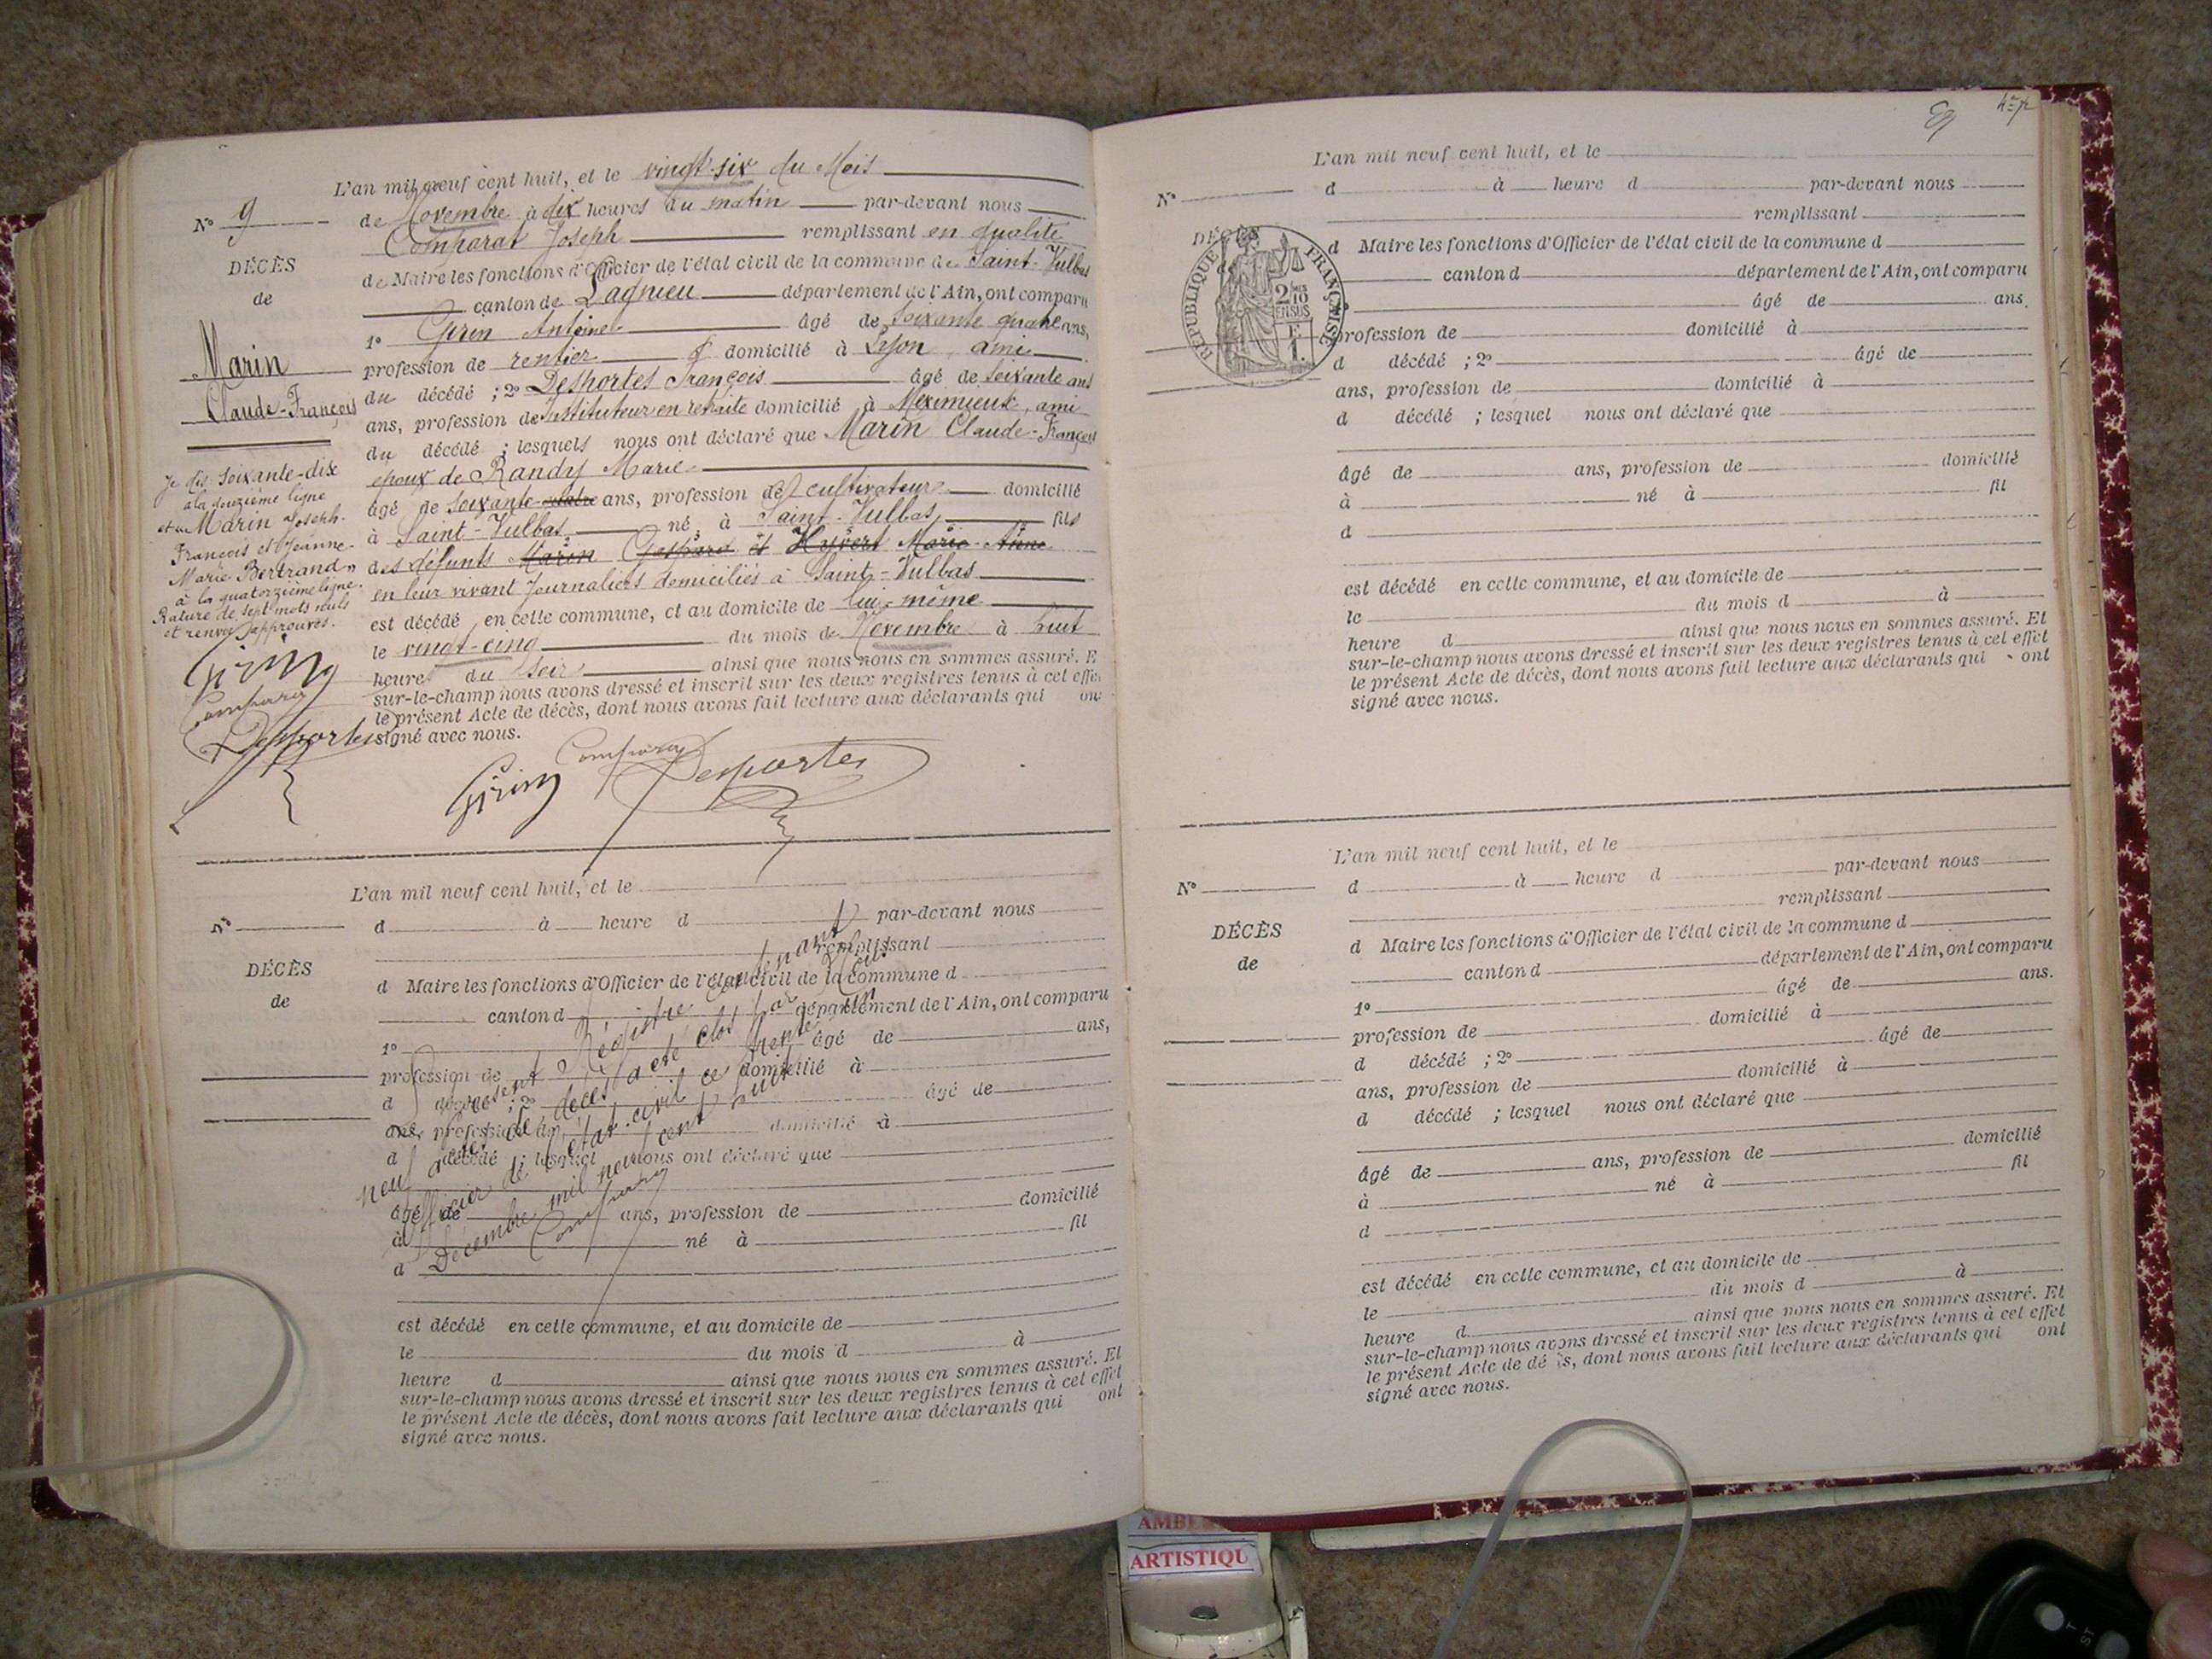 L'an mil neuf cent huit, et le vingt-six du Mois
N° 9
de Novembre à dix heures du matin par-devant nous
Comparat Joseph remplissant en qualité
DÉCÈS
de Maire les fonctions d'Officier de l'état civil de la commune de Saint-Vulbas
de
canton de Lagnieu département de l'Ain, ont comparu
1° Girin Antoine âgé de soixante quatre ans,
Marin
profession de rentier domicilié à Lyon, ami
du décédé ; 2° Desportes François âgé de soixante ans
Claude-François
ans, profession de Instituteur en retraite domicilié à Meximieux, ami
du décédé ; lesquels nous ont déclaré que Marin Claude-François
époux de Randy Marie
âgé de soixante ans, profession de cultivateur domicilié
à Saint-Vulbas né à Saint-Vulbas, fils
des défunts Marin Gaspard et Hyvert Marie Anne
en leur vivant Journaliers domiciliés à Saint-Vulbas
est décédé en cette commune, et au domicile de lui-même
le vingt-cinq du mois de Novembre à huit
heures du soir ainsi que nous nous en sommes assuré. E
sur-le-champ nous avons dressé et inscrit sur les deux registres tenus à cet effe
le présent Acte de décès, dont nous avons fait lecture aux déclarants qui on
signé avec nous.
Je dis soixante-dix
à la douzième ligne
et « Marin Joseph-
François et Jeanne-
Marie Bertrand »
à la quatorzième ligne.
Rature de sept mots nuls
et renvoi approuvés.
Girin
Comparat
Desportes
Comparat
Girin
Desportes
L'an mil neuf cent huit, et le
N°
d à heure d par-devant nous
remplissant
DÉCÈS
d Maire les fonctions d'Officier de l'état civil de la commune d
de
canton d département de l'Ain, ont comparu
1° âgé de ans,
profession de domicilié à
d décédé ; 2° âgé de
ans, profession de domicilié à
d décédé ; lesquel nous ont déclaré que
âgé de ans, profession de domicilié
à né à fil
d
est décédé en cette commune, et au domicile de
le du mois d à
heure d ainsi que nous nous en sommes assuré. Et
sur-le-champ nous avons dressé et inscrit sur les deux registres tenus à cet effet
le présent Acte de décès, dont nous avons fait lecture aux déclarants qui ont
signé avec nous.
Présent Régistre contenant
neuf actes de décès a été clos par Nous
Officier de l'état-civil ce trente un
Décembre mil neuf cent huit
Comparat
L'an mil neuf cent huit, et le
N°
d à heure d par-devant nous
remplissant
DÉCÈS
d Maire les fonctions d'Officier de l'état civil de la commune d
canton d département de l'Ain, ont comparu
RÉPUBLIQUE FRANÇAISE
2
10
EN SUS
E
1.
âgé de ans.
profession de domicilié à
d décédé ; 2° âgé de
ans, profession de domicilié à
d décédé ; lesquel nous ont déclaré que
âgé de ans, profession de domicilié
à né à fil
d
est décédé en cette commune, et au domicile de
le du mois d à
heure d ainsi que nous nous en sommes assuré. Et
sur-le-champ nous avons dressé et inscrit sur les deux registres tenus à cet effet
le présent Acte de décès, dont nous avons fait lecture aux déclarants qui ont
signé avec nous.
L'an mil neuf cent huit, et le
N°
d à heure d par-devant nous
remplissant
DÉCÈS
d Maire les fonctions d'Officier de l'état civil de la commune d
de
canton d département de l'Ain, ont comparu
1° âgé de ans.
profession de domicilié à
d décédé ; 2° âgé de
ans, profession de domicilié à
d décédé ; lesquel nous ont déclaré que
âgé de ans, profession de domicilié
à né à fil
d
est décédé en cette commune, et au domicile de
le du mois d à
heure d ainsi que nous nous en sommes assuré. Et
sur-le-champ nous avons dressé et inscrit sur les deux registres tenus à cet effet
le présent Acte de dé ès, dont nous avons fait lecture aux déclarants qui ont
signé avec nous.
ARTISTIQU
T
ST